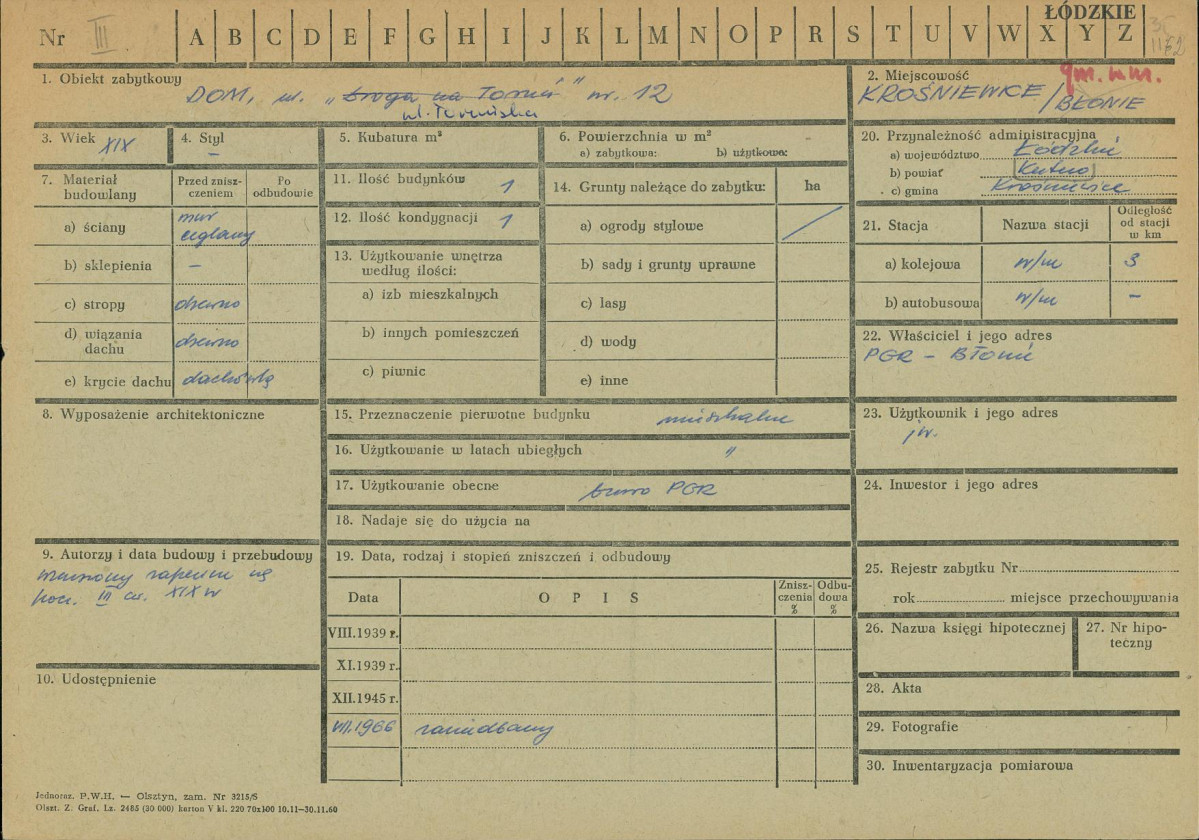 Nr III A B C D E F G H I J K L M N O P R S T U V W X Y Z
ŁÓDZKIE
1. Obiekt zabytkowy
DOM, ul. „droga na Toruń" nr. 12
ul. Toruńska
2. Miejscowość
gm. m m.
KROŚNIEWICE / BŁONIE
3. Wiek XIX
4. Styl –
5. Kubatura m³
6. Powierzchnia w m²
a) zabytkowa: b) użytkowa:
7. Materiał budowlany
Przed znisz-
czeniem
Po
odbudowie
a) ściany mur
ceglany
b) sklepienia –
c) stropy drewno
d) wiązania
dachu drewno
e) krycie dachu dachówką
8. Wyposażenie architektoniczne
9. Autorzy i data budowy i przebudowy
wzniesiony zapewne na
pocz. III ćw. XIX w
10. Udostępnienie
11. Ilość budynków 1
12. Ilość kondygnacji 1
13. Użytkowanie wnętrza
według ilości:
a) izb mieszkalnych
b) innych pomieszczeń
c) piwnic
14. Grunty należące do zabytku: ha
a) ogrody stylowe /
b) sady i grunty uprawne
c) lasy
d) wody
e) inne
15. Przeznaczenie pierwotne budynku mieszkalne
16. Użytkowanie w latach ubiegłych "
17. Użytkowanie obecne biuro PGR
18. Nadaje się do użycia na
19. Data, rodzaj i stopień zniszczeń i odbudowy
Data OPIS
Znisz-
czenia
%
Odbu-
dowa
%
VIII.1939 r.
XI.1939 r.
XII.1945 r.
VII.1966 zaniedbany
20. Przynależność administracyjna
a) województwo Łódzkie
b) powiat Kutno
c) gmina Krośniewice
21. Stacja Nazwa stacji
Odległość
od stacji
w km
a) kolejowa w/m 3
b) autobusowa w/m –
22. Właściciel i jego adres
PGR – Błonie
23. Użytkownik i jego adres
jw.
24. Inwestor i jego adres
25. Rejestr zabytku Nr
rok miejsce przechowywania
26. Nazwa księgi hipotecznej
27. Nr hipo-
teczny
28. Akta
29. Fotografie
30. Inwentaryzacja pomiarowa
Jednoraz. P.W.H. — Olsztyn, zam. Nr 3215/S
Olszt. Z. Graf. Lz. 2485 (30 000) karton V kl. 220 70x100 10.11—30.11.60